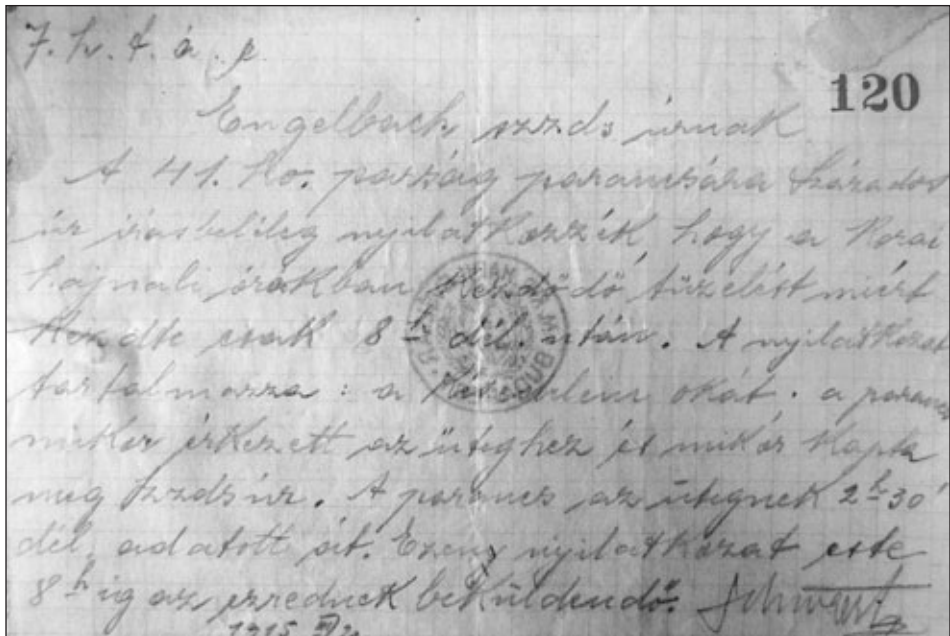 7. h. t. á. p.
120
Engelbach szzds úrnak
A 41. Ho. pság parancsára Százados
úr irásbelileg nyilatkozzék, hogy a korai
hajnali órákban kezdődő tüzelést miért
kezdte csak 8 h dél. után. A nyilatkozat
tartalmazza: a késedelem okát. a parancs
mikor érkezett az üteghez és mikor kapta
meg szzds úr. A parancs az ütegnek 2 h 30'
dél. adatott át. Ezen nyilatkozat este
8 h ig az ezrednek beküldendő.
1915